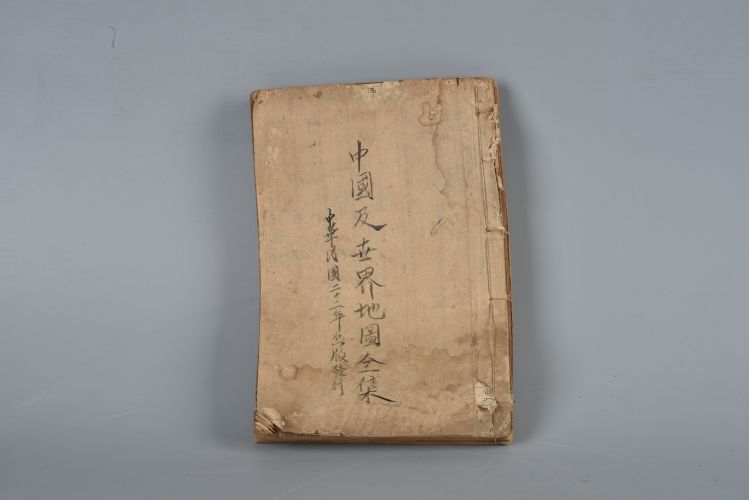 中國及世界地圖全集
中華民國二十二年出版發行